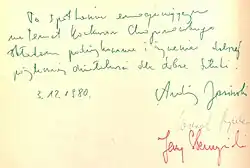 Po spotkaniu emocjonującym
na temat Konkursu Chopinowskiego
składam podziękowanie i życzenia dalszej
pięknej działalności dla dobra Sztuki!
3.12.1980. Andrzej Jasiński
Jerzy